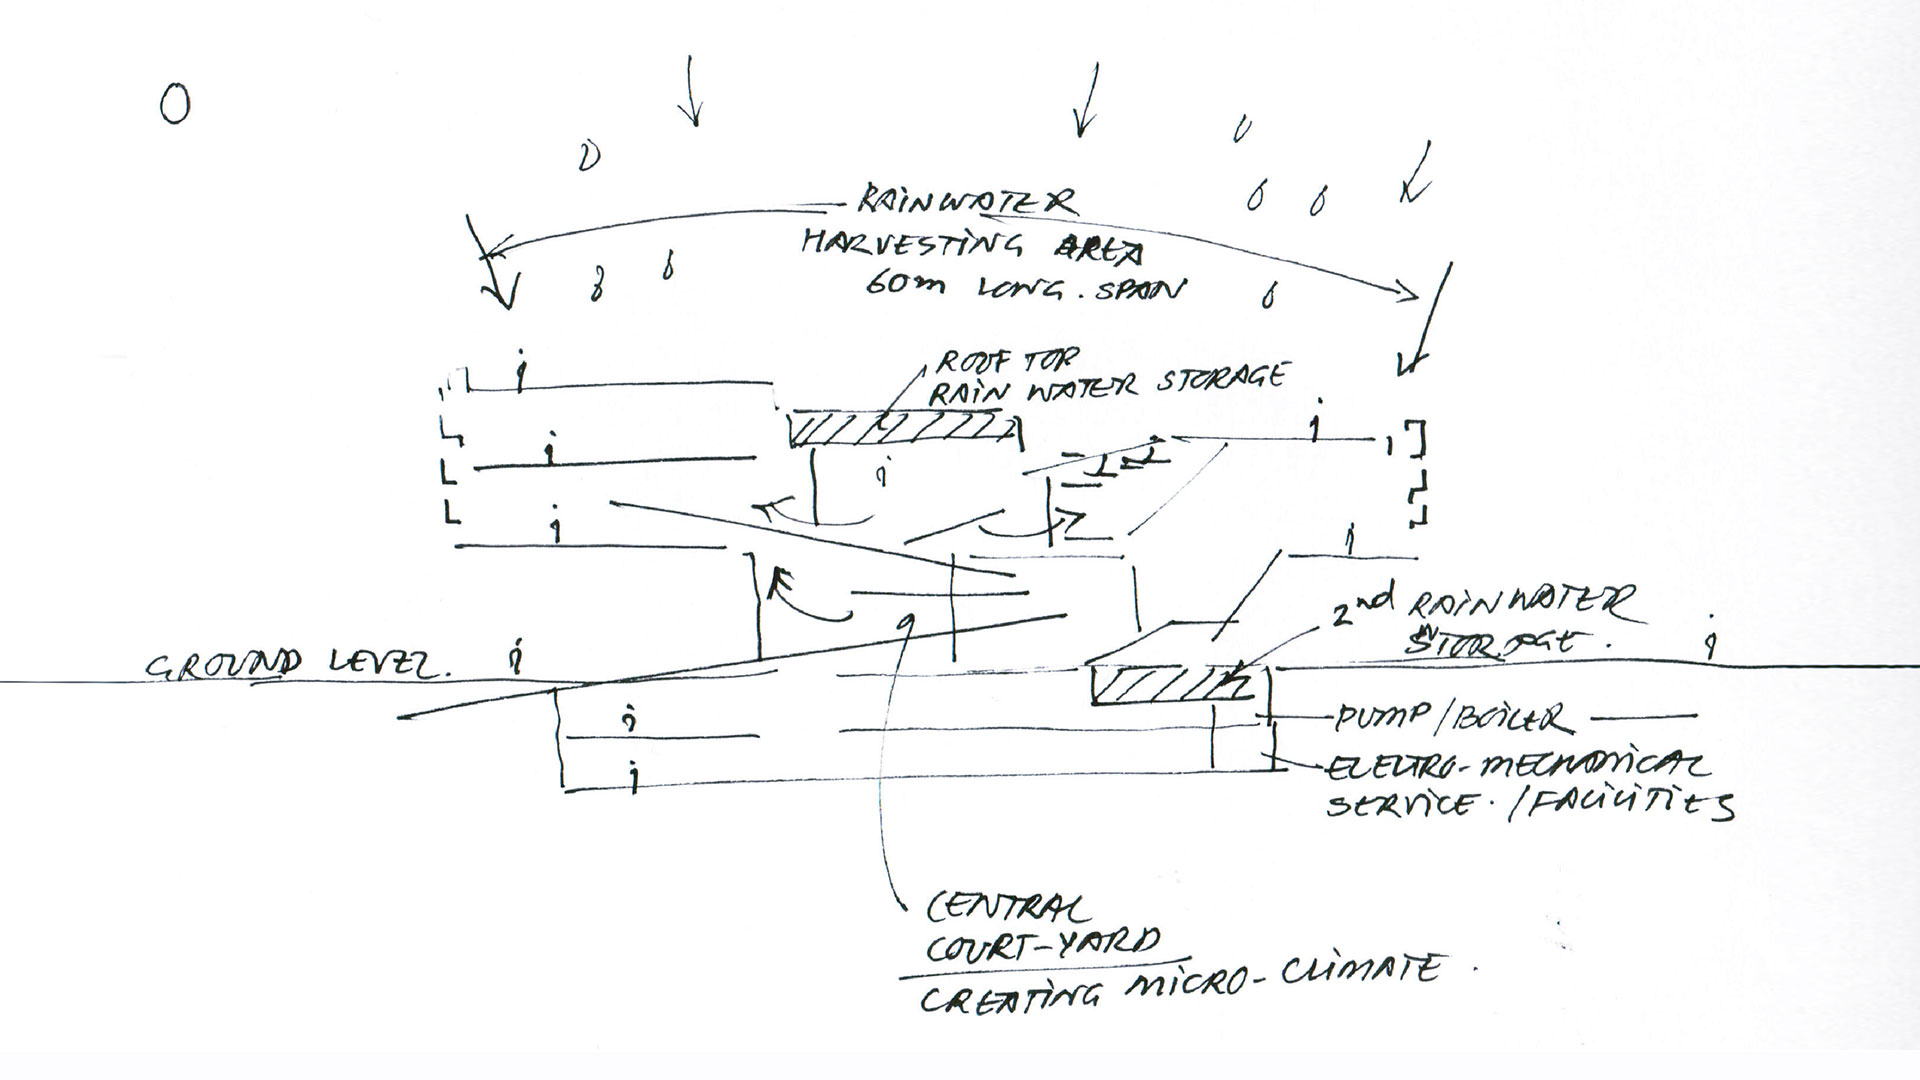 RAINWATER
HARVESTING AREA
60m LONG. SPAN
ROOF TOP
RAIN WATER STORAGE
2nd RAINWATER
STORAGE.
GROUND LEVEL.
PUMP/BOILER
ELECTRO-MECHANICAL
SERVICE./FACILITIES
CENTRAL
COURT-YARD
CREATING MICRO-CLIMATE.